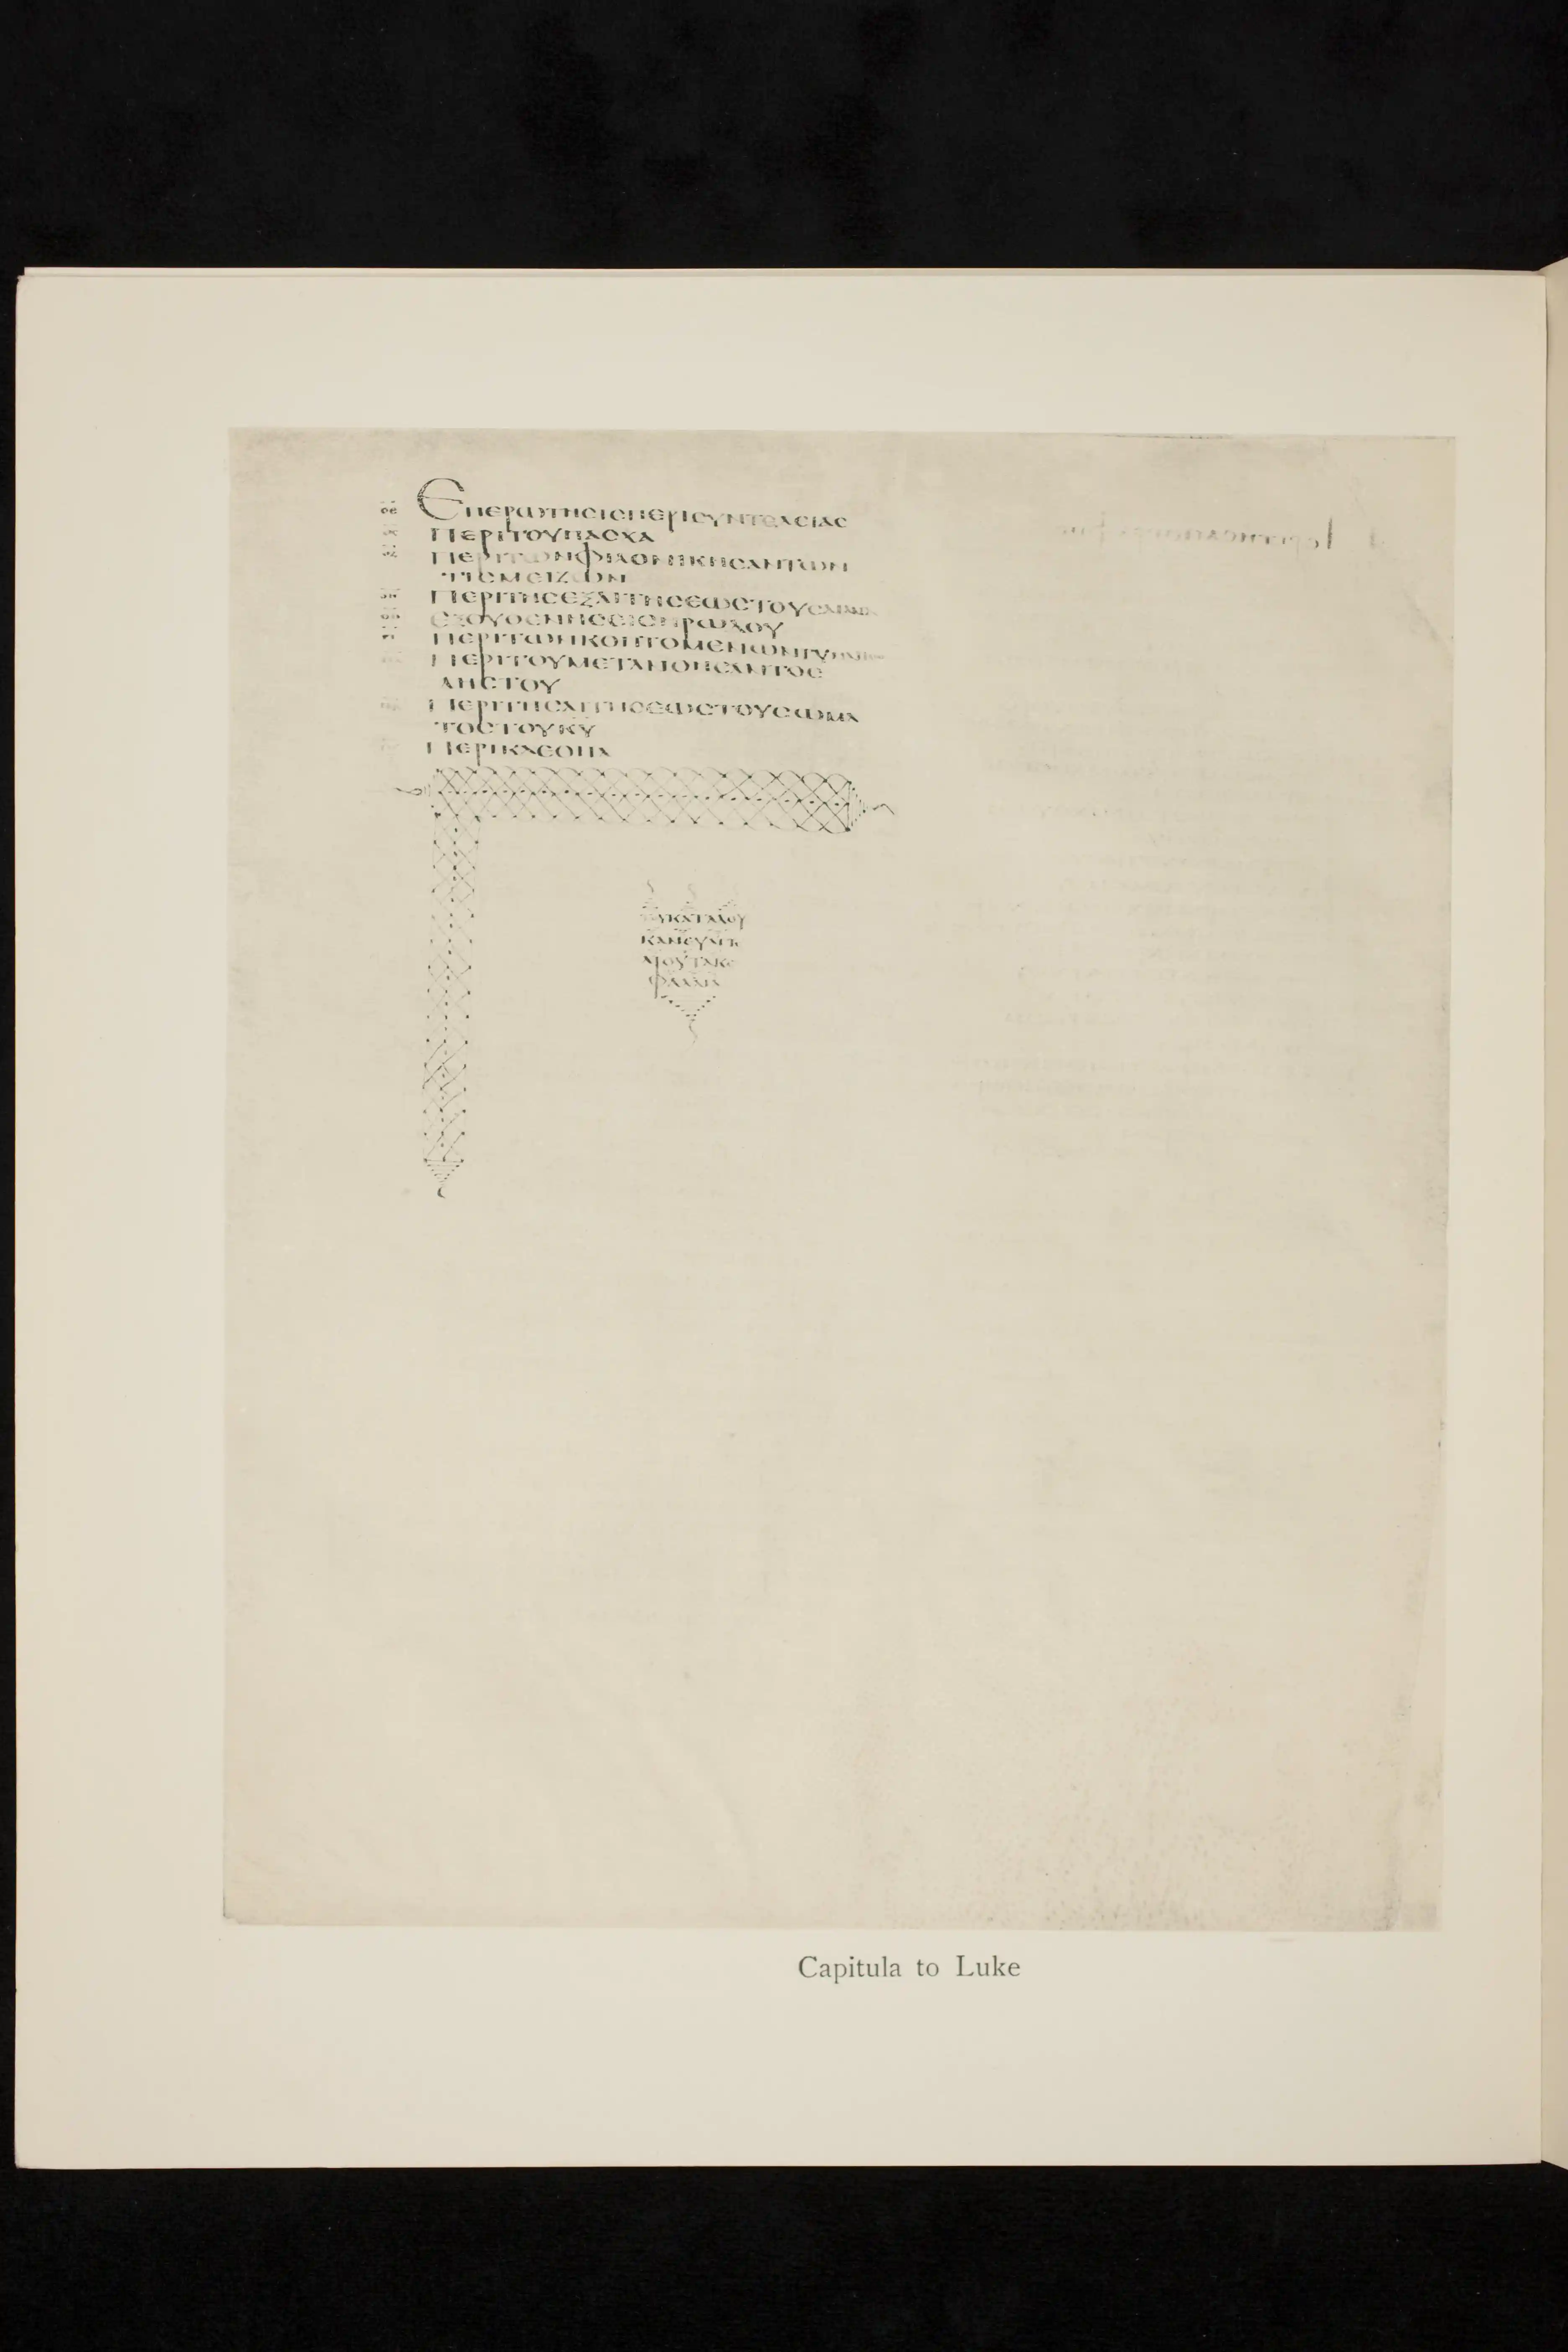 ΕΠΕΡΩΤΗCΙC ΠΕΡΙ CΥΝΤΕΛΕΙΑC
ΠΕΡΙ ΤΟΥ ΠΑCΧΑ
ΠΕΡΙ ΤΩΝ ΦΙΛΟΝΙΚΗCΑΝΤΩΝ
ΤΙC ΜΕΙΖΩΝ
ΠΕΡΙ ΤΗC ΕΞΑΙΤΗCΕΩC ΤΟΥ CΑΤΑΝΑ
ΕΞΟΥΘΕΝΗCΕΙC ΗΡΩΔΟΥ
ΠΕΡΙ ΤΩΝ ΚΟΠΤΟΜΕΝΩΝ
ΠΕΡΙ ΤΟΥ ΜΕΤΑΝΟΗCΑΝΤΟC
ΛΗCΤΟΥ
ΠΕΡΙ ΤΗC ΑΙΤΗCΕΩC ΤΟΥ CΩΜΑ
ΤΟC ΤΟΥ ΚΥ
ΠΕΡΙ ΚΛΕΟΠΑ
ΚΑΤΑ ΛΟΥ
ΚΑΝ ΕΥΑΓΓΕ
ΛΙΟΥ ΤΑ ΚΕ
ΦΑΛΑΙΑ
Capitula to Luke